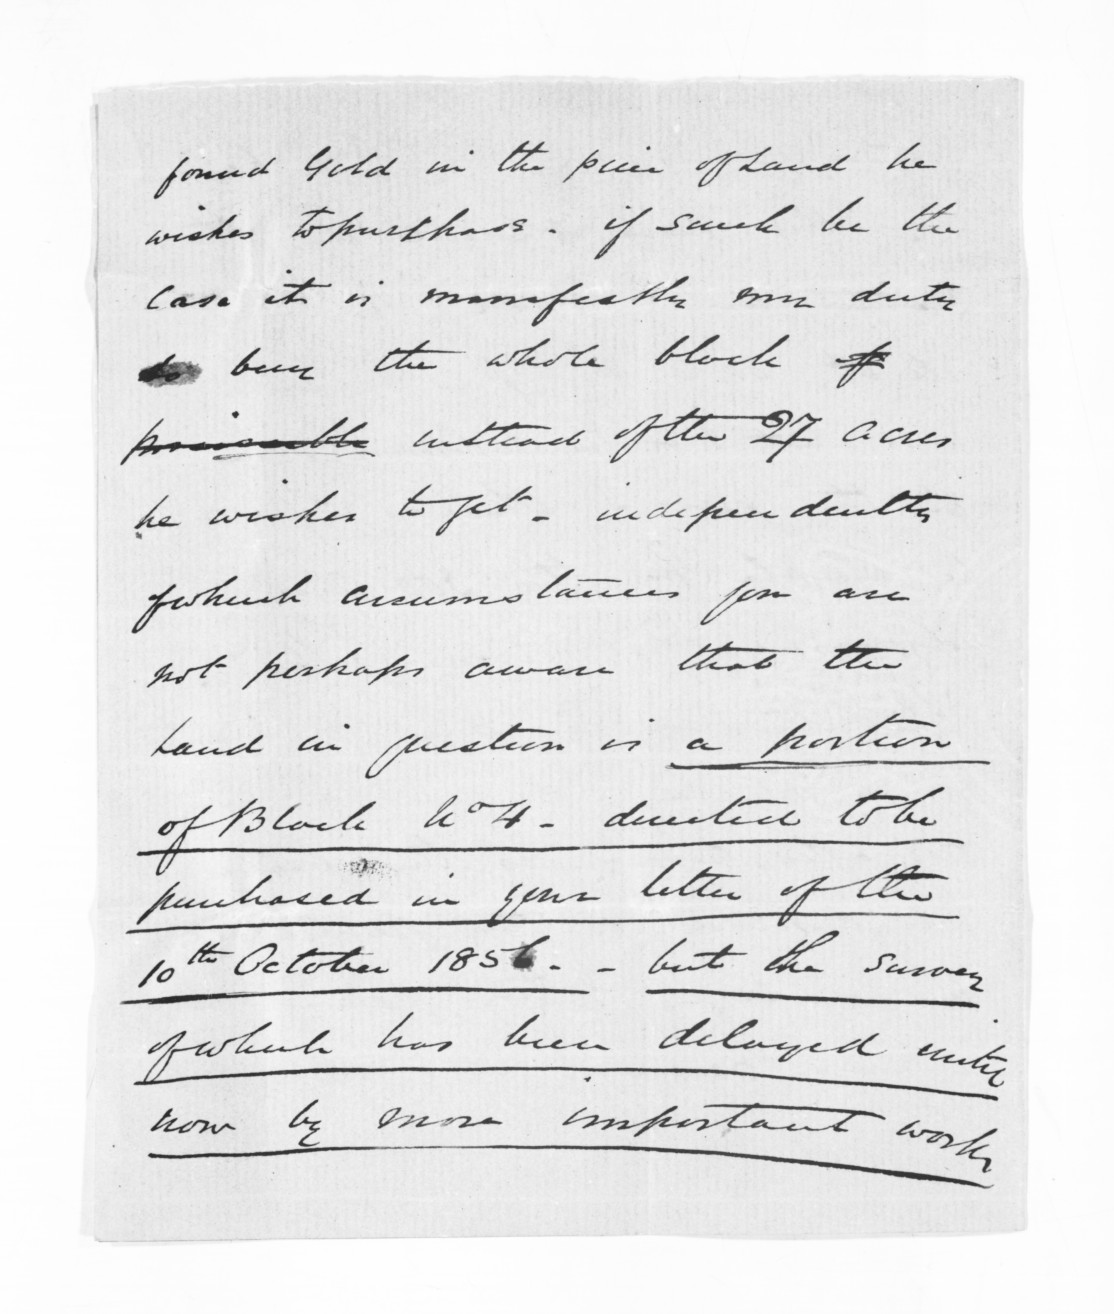 found Gold in the piece of Land he
wishes to purchase - if such be the
case it is manifestly my duty
to buy the whole block if
possible instead of the 27 acres
he wishes to get - independently
of which circumstances you are
not perhaps aware that the
Land in question is a portion
of Block No 4 - directed to be
purchased in your letter of the
10th October 1856. - but the survey
of which has been delayed until
now by more important work